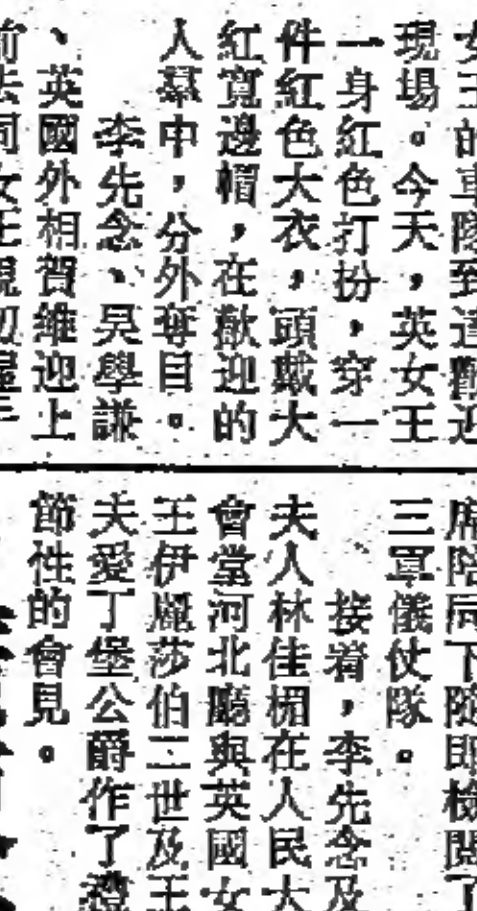 女王的車隊到達歡迎
現場。今天，英女王
一身紅色打扮，穿一
件紅色大衣，頭戴大
紅寬邊帽，在歡迎的
人羣中，分外奪目。
李先念、吳學謙
、英國外相賀維迎上
前去同女王親切握手
席陪同下隨即檢閱了
三軍儀仗隊。
接着，李先念及
夫人林佳楣在人民大
會堂河北廳與英國女
王伊麗莎伯二世及王
夫愛丁堡公爵作了禮
節性的會見。